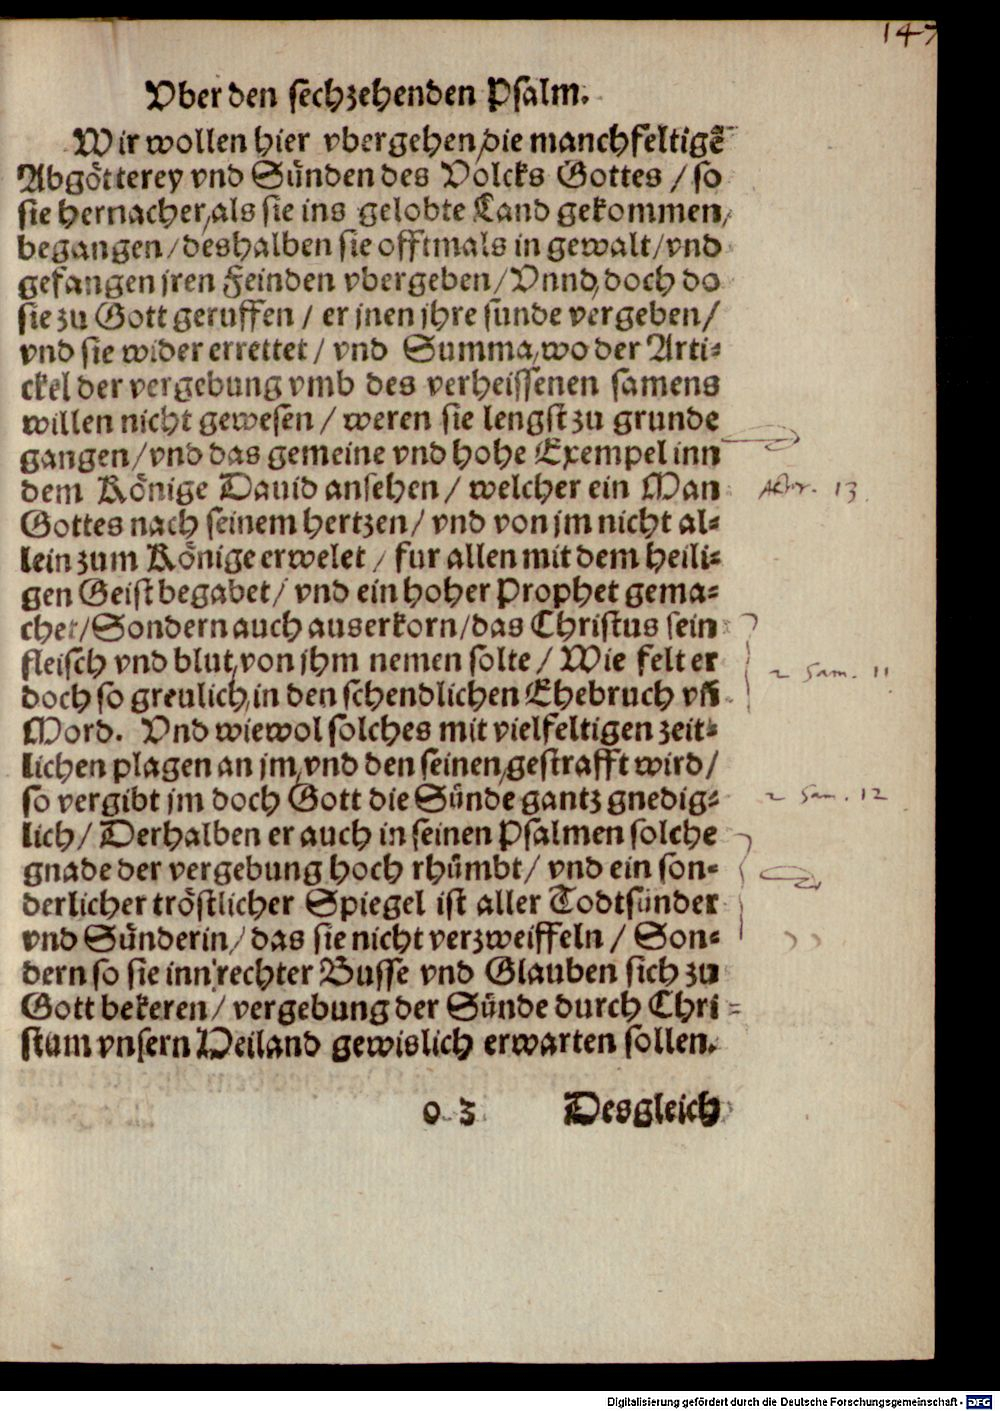 147
Vber den sechzehenden Psalm.
Wir wollen hier vbergehen/die manchfeltigē
Abgötterey vnd Sünden des Volcks Gottes / so
sie hernacher/als sie ins gelobte Land gekommen/
begangen/deshalben sie offtmals in gewalt/vnd
gefangen jren Feinden vbergeben/Vnnd/doch do
sie zu Gott geruffen / er jnen jhre sunde vergeben/
vnd sie wider errettet / vnd Summa/wo der Arti⸗
ckel der vergebung vmb des verheissenen samens
willen nicht gewesen / weren sie lengst zu grunde
gangen/vnd das gemeine vnd hohe Exempel inn
dem Könige Dauid ansehen / welcher ein Man
Actor. 13
Gottes nach seinem hertzen/ vnd von jm nicht al⸗
lein zum Könige erwelet / fur allen mit dem heili⸗
gen Geist begabet/ vnd ein hoher Prophet gema⸗
chet/Sondern auch auserkorn/das Christus sein
fleisch vnd blut/von jhm nemen solte / Wie felt er
2 Sam. 11
doch so greulich/in den schendlichen Ehebruch vñ
Mord. Vnd wiewol solches mit vielfeltigen zeit⸗
lichen plagen an jm/vnd den seinen/gestrafft wird/
so vergibt jm doch Gott die Sünde gantz gnedig⸗
2 Sam. 12
lich/ Derhalben er auch in seinen Psalmen solche
gnade der vergebung hoch rhümbt/ vnd ein son⸗
derlicher tröstlicher Spiegel ist aller Todtsünder
vnd Sünderin/ das sie nicht verzweiffeln / Son⸗
dern so sie inn rechter Busse vnd Glauben sich zu
Gott bekeren/ vergebung der Sünde durch Chri⸗
stum vnsern Heiland gewislich erwarten sollen.
o 3 Desgleich
Digitalisierung gefördert durch die Deutsche Forschungsgemeinschaft - DFG